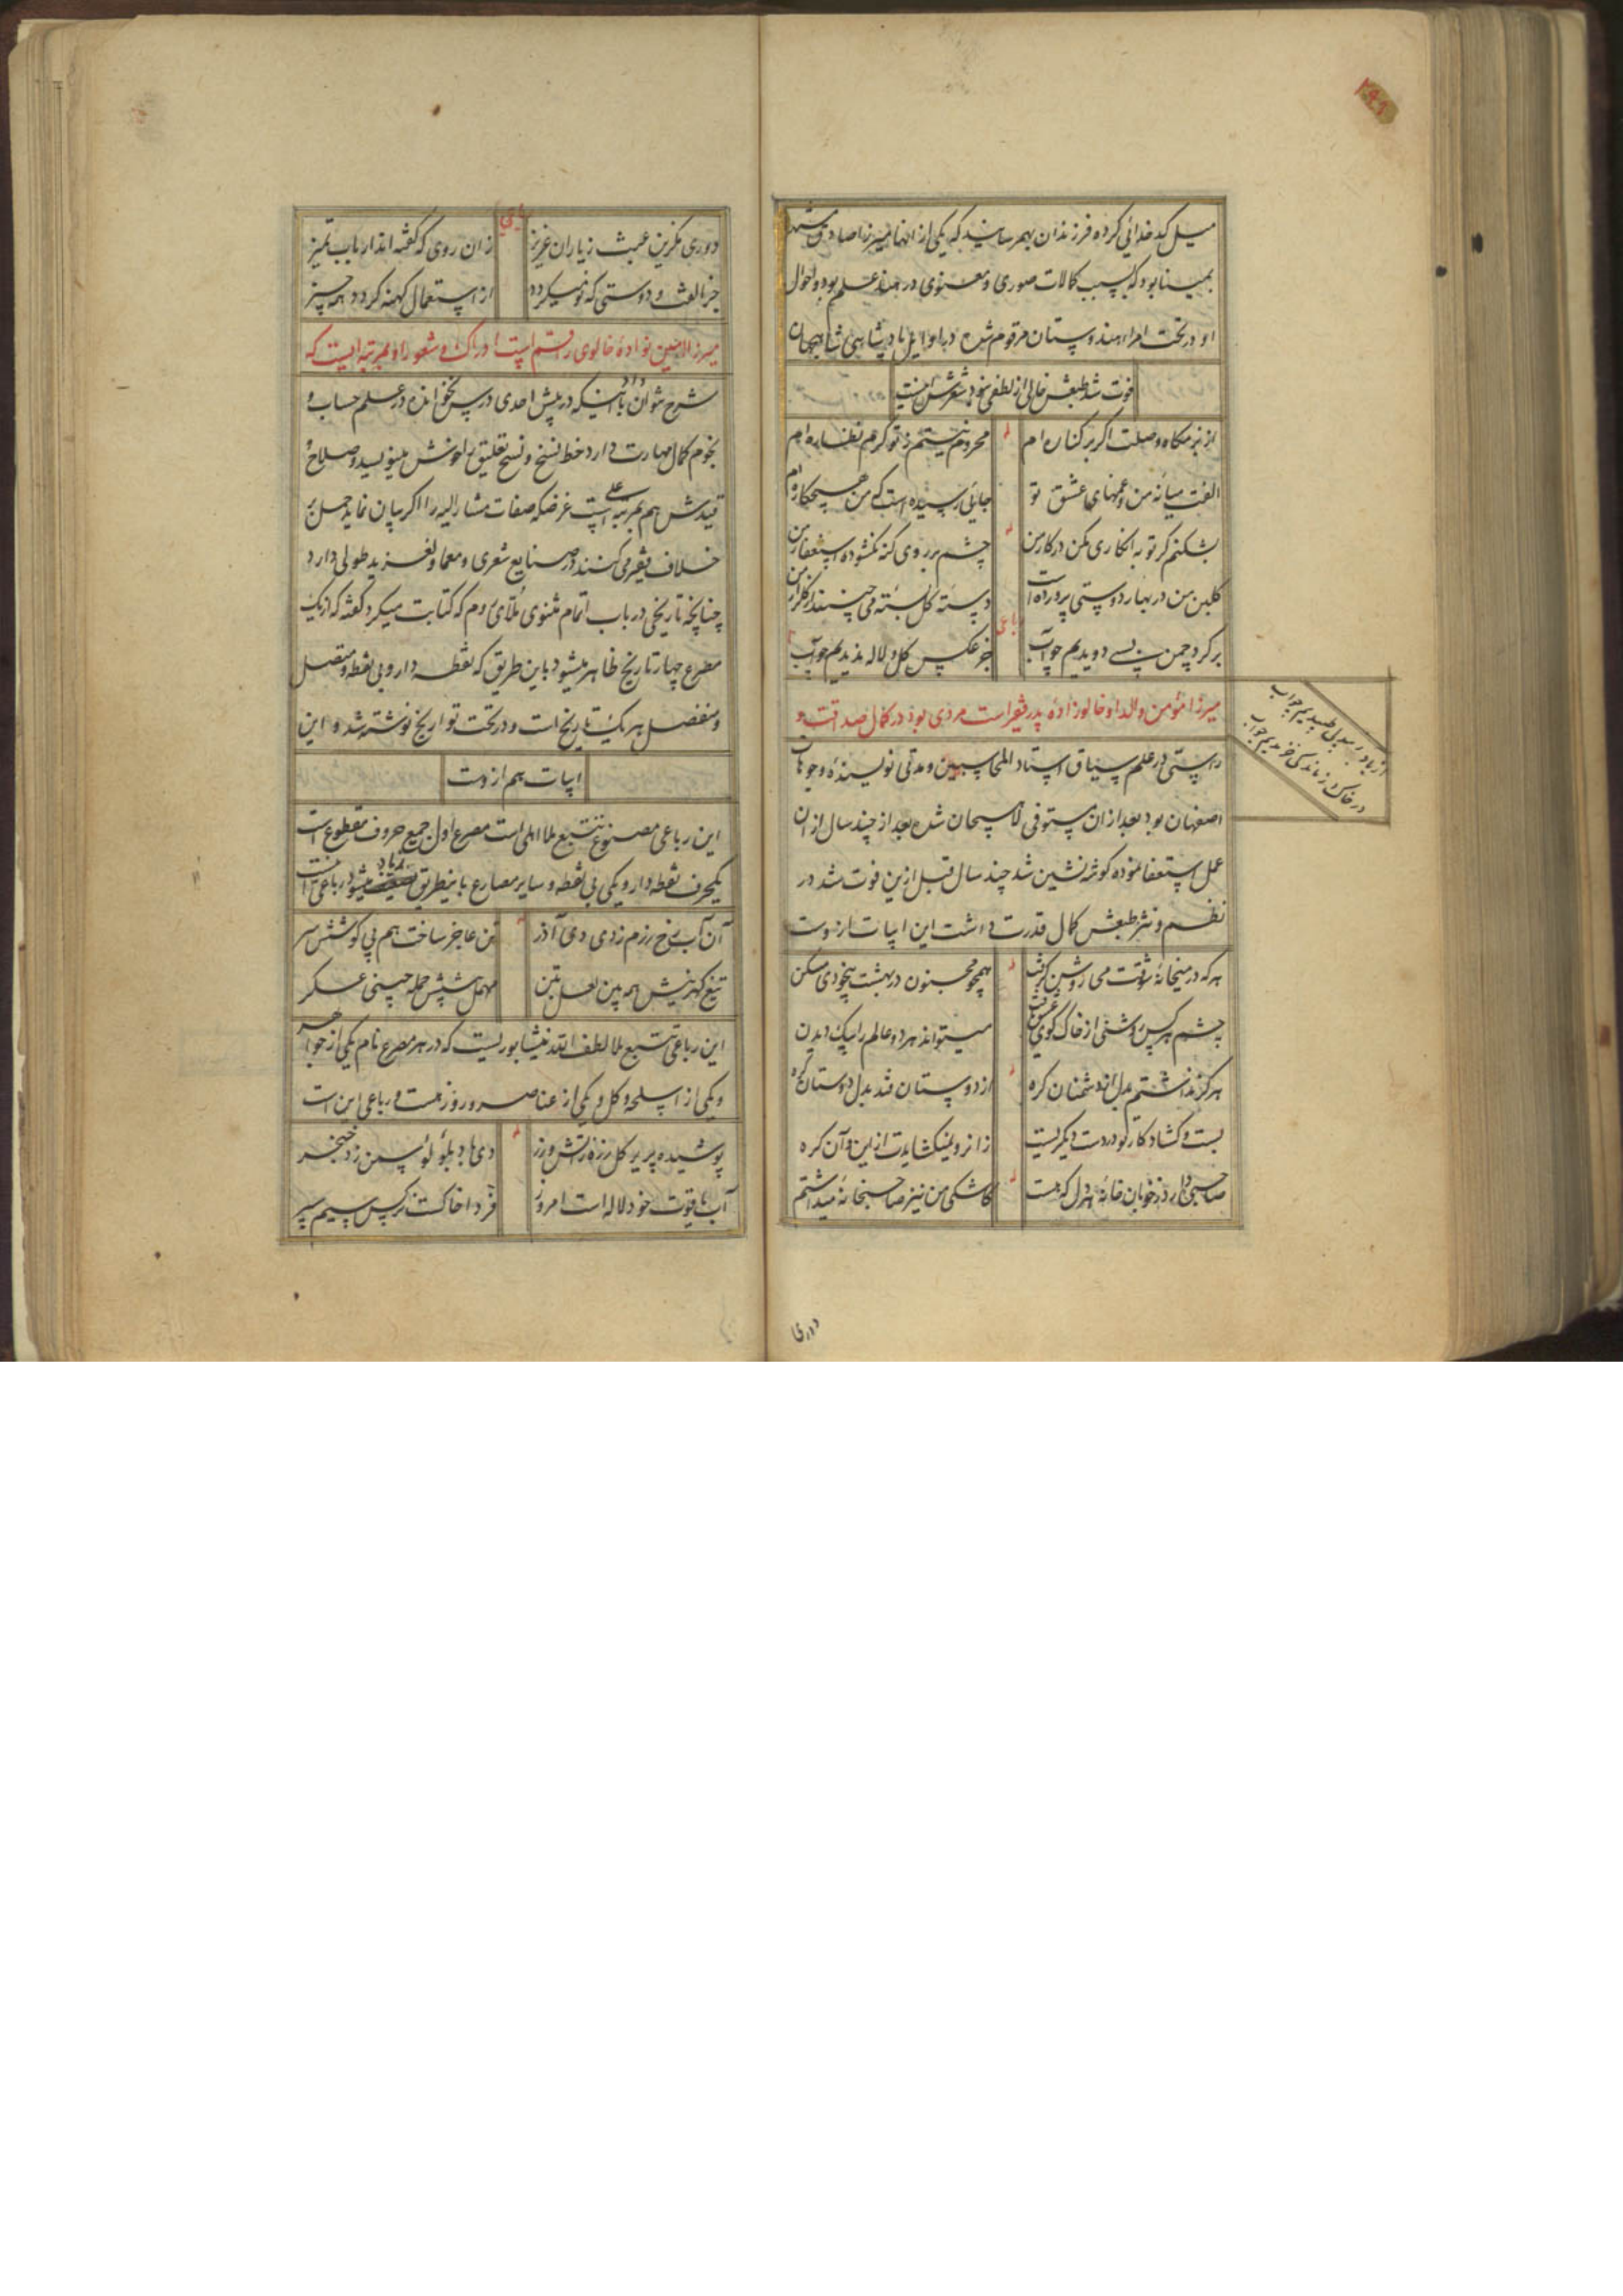 میل کدخدائی کرده فرزندان بهمرسانید که یکی از آنها میرزا صادق مشهور
بمینا بود که بسبب کمالات صوری و معنوی در هند علم بود و احوال
او در تحت امراء هندوستان مرقوم شده در اوایل پادشاهی شاه جهان
فوت شد طبعش خالی از لطفی نبود شعرش اینست
از بزمگاه وصلت اگر بر کناره ام
محروم نیستم ز تو گرم نظاره ام
الفت میانه من و غمهای عشق تو
جائی رسیده است که من هیچکاره ام
بشکنم گر توبه انکاری مکن در کار من
چشم بر روی گنه نگشوده استغفار من
گلبن من در بهار دوستی پرورده است
دسته گل بسته می چینند از گلزار من
رباعی
بر گرد چمن بسی دویدیم چو آب
جز عکس گل و لاله ندیدیم چو آب
از باد بدل طپیدیم چو آب
در خاک ز ماندگی خزیدیم چو آب
میرزا مؤمن والد او خالوزاده پدر فقیر است مردی بود در کمال صداقت و
راستی در علم سیاق استاد المحاسبین و مدتی نویسنده وجوهات
اصفهان بود بعد از ان مستوفی لاهیجان شده بعد از چند سال از ان
عمل استعفا نموده گوشه نشین شد چند سال قبل ازین فوت شد در
نظم و نثر طبعش کمال قدرت داشت این ابیات ازوست
هر که در میخانه شوقت می روشن کشد
همچو مجنون در بهشت بیخودی مسکن
چشم هر کس روشنی از خاک کوی عشق
میتواند هر دو عالم را بیک دیدن
هرگز نداشتم بدل از دشمنان گره
از دوستان فتد بدل دوستان گره
بست و گشاد کار تو در دست دیگریست
زانرو نمیگشایدت از این و آن گره
صاحبی دارد ز خوبان خانه هر دل که هست
کاشکی من نیز صاحبخانه میداشتم
دوری
رباعی
دوری مگزین عبث ز یاران عزیز
زان روی که گفته اند ارباب تمیز
جز الفت و دوستی که نو میگردد
از استعمال کهنه گردد همه چیز
میرزا امین نواده خالوی راقم است ادراک و شعور او بمرتبه ایست که
شرح نتوان داد با اینکه در پیش احدی درس نخوانده در علم حساب و
نجوم کمال مهارت دارد خط نسخ و نسخ تعلیق را خوش مینویسد و صلاح و
قیدش هم بمرتبه اعلی است غرضکه صفات مشارالیه را اگر بیان نماید حمل بر
خلاف فقیر می کنند در صنایع شعری و معما و لغز ید طولی دارد
چنانچه تاریخی در باب اتمام مثنوی ملای روم که کتابت میکرد گفته که از یک
مصرع چهار تاریخ ظاهر میشود باین طریق که نقطه دار و بی نقطه و متصل
و منفصل هر یک تاریخ است و در تحت تواریخ نوشته شد و این
ابیات هم ازوست
این رباعی مصنوع تتبع ملا اهلی است مصرع اول جمیع حروف مقطوع است
یکحرف نقطه دار و یکی بی نقطه و سایر مصارع باینطریق زیاد میشود رباعی اینست
آن آب رخ رزم زدی دی آذر
تن عاجز ساخت هم پی کوشش سر
تیغ کهربش همه بین لعل بتن
مهمل شپش جمله چینی عسکر
این رباعی تتبع ملا لطف الله نیشابوریست که در هر مصرع نام یکی از جواهر
و یکی از اسلحه و گل و یکی از عناصر و روز هست و رباعی این است
پوشیده پریر گل زره ز آتش ورز
دی باد بلؤلؤ سمن زد خنجر
آب یاقوت خود لاله است امروز
فردا خاکست نرگس سیم سپر